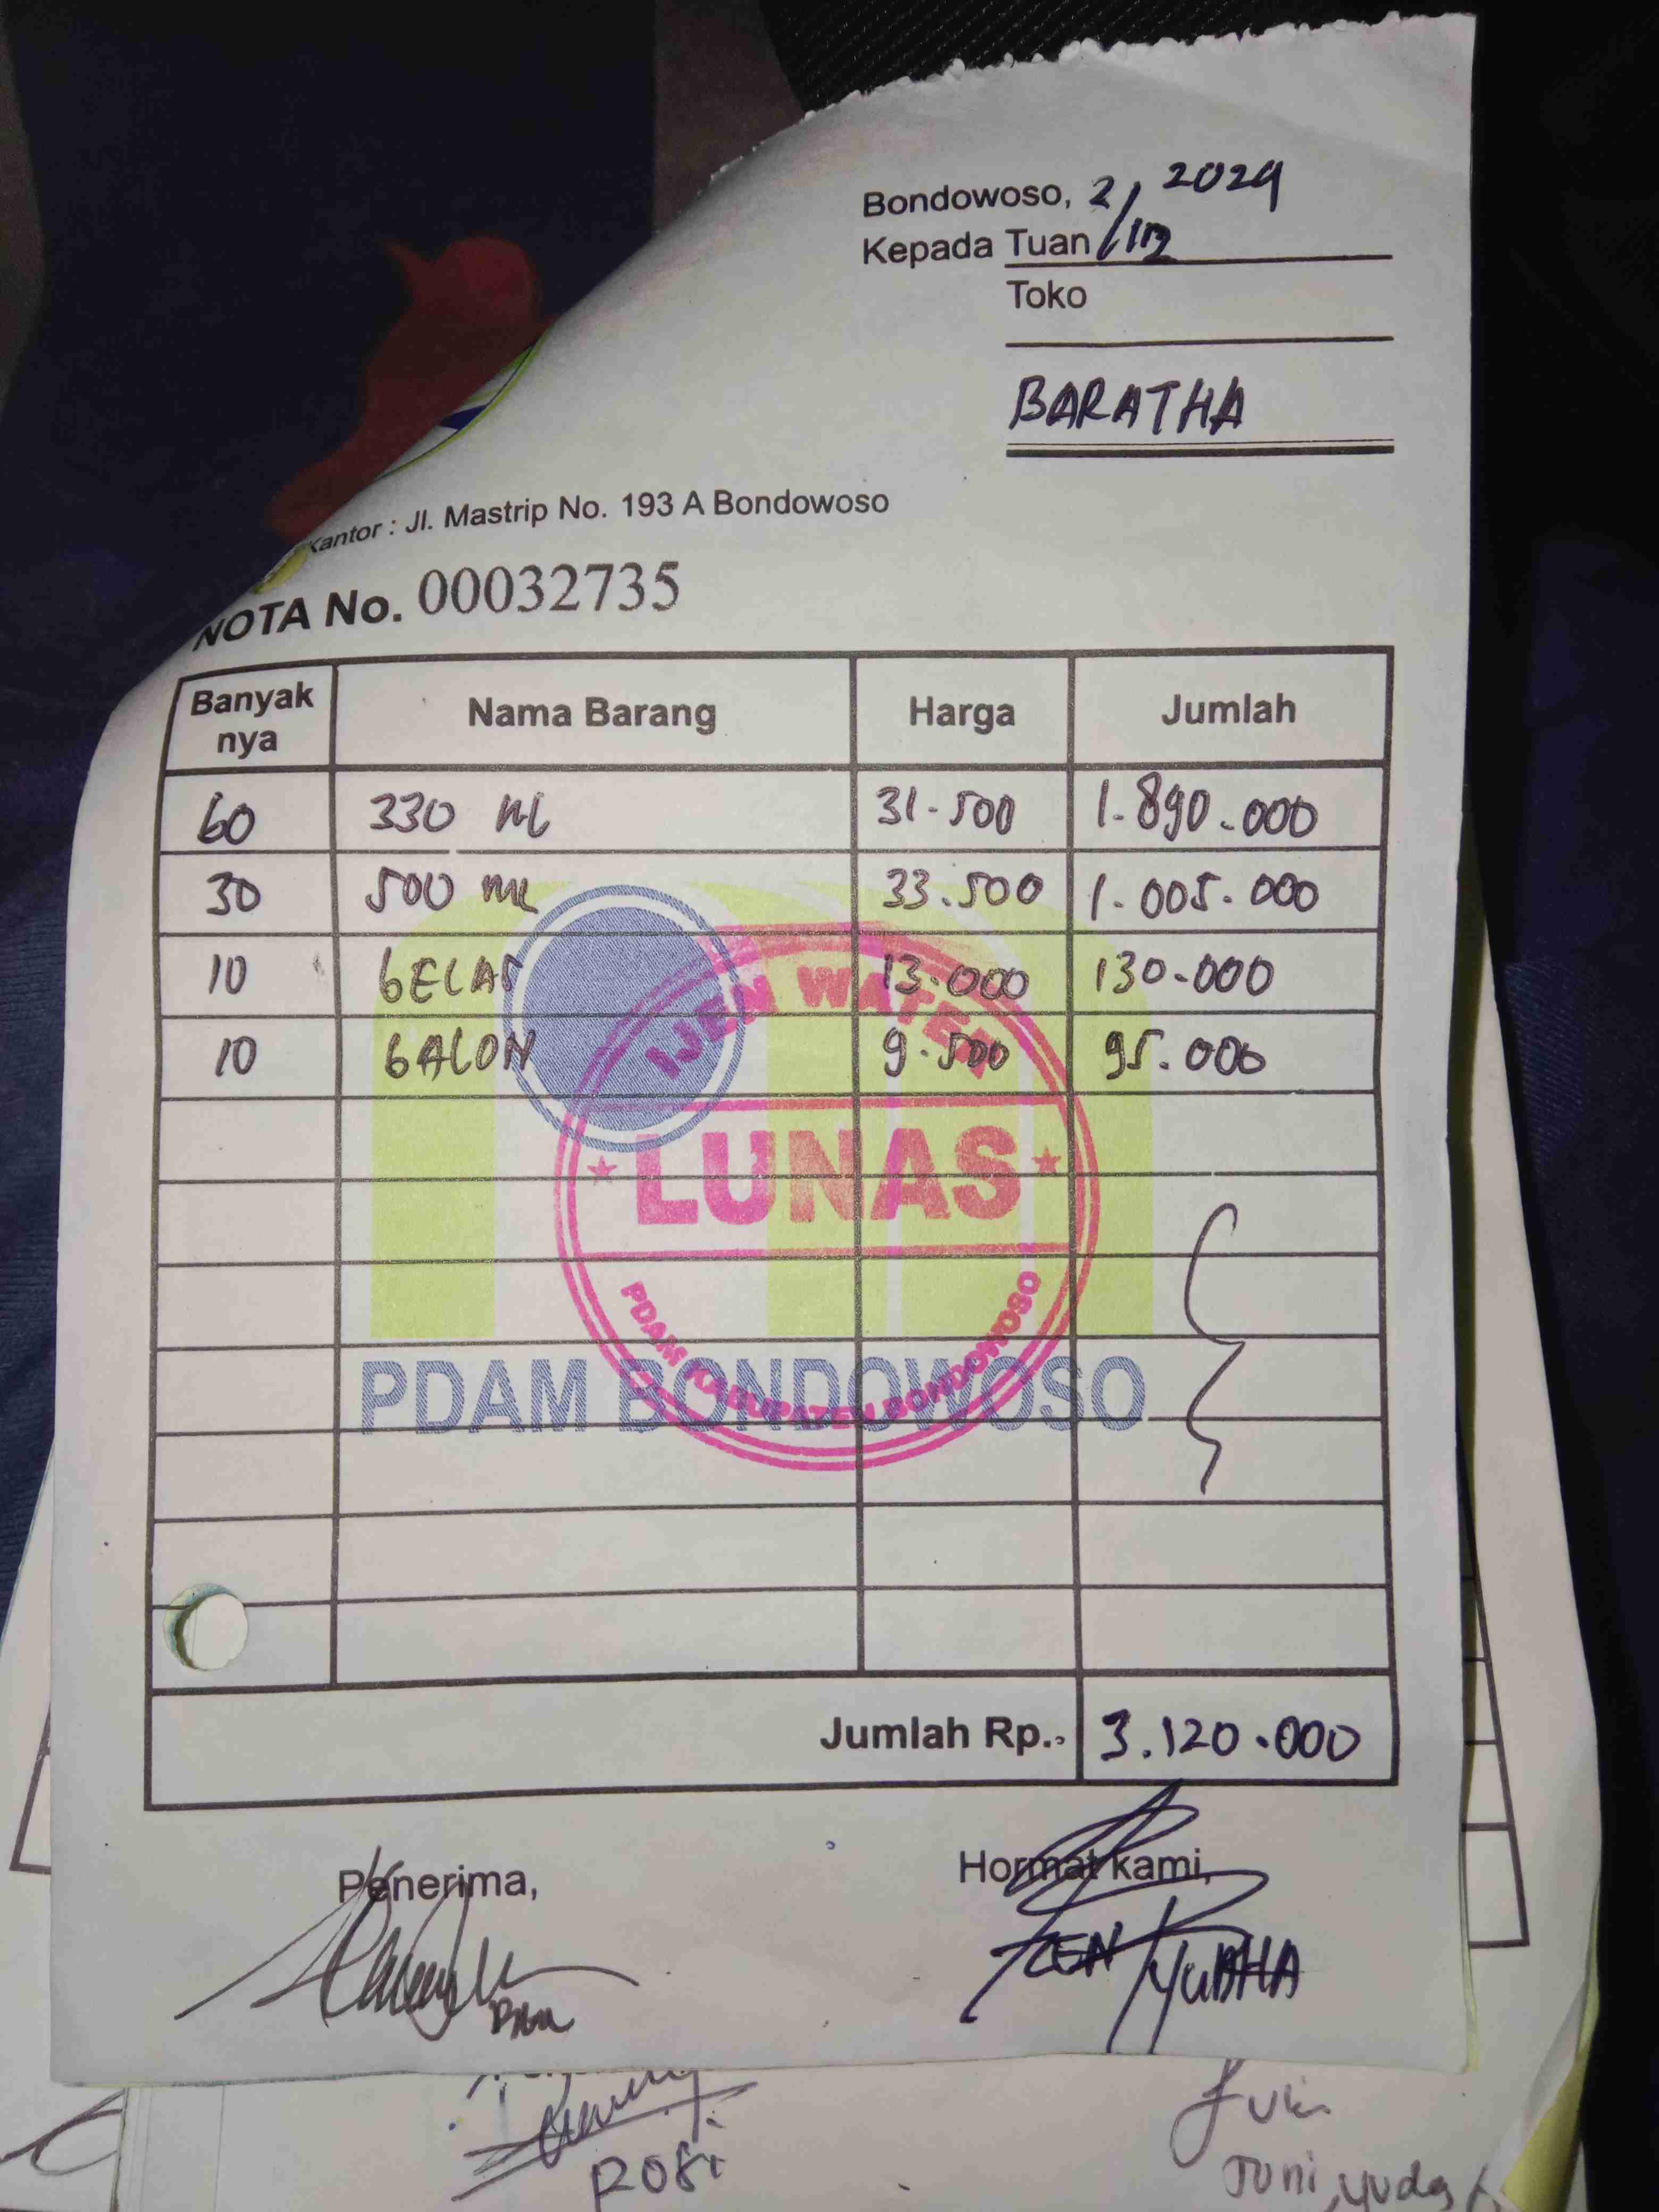 Bondowoso, 2/12 2024
Kepada Tuan
Toko
BARATHA
Kantor : Jl. Mastrip No. 193 A Bondowoso
NOTA No. 00032735
Banyak nya Nama Barang Harga Jumlah
60 330 ML 31.500 1.890.000
30 500 ML 33.500 1.005.000
10 GELAS 13.000 130.000
10 GALON 9.500 95.000
IJEN WATER
LUNAS
PDAM KABUPATEN BONDOWOSO
PDAM BONDOWOSO
Jumlah Rp. 3.120.000
Penerima, Hormat kami,
YUDHA
ROSi
Juni, yuda